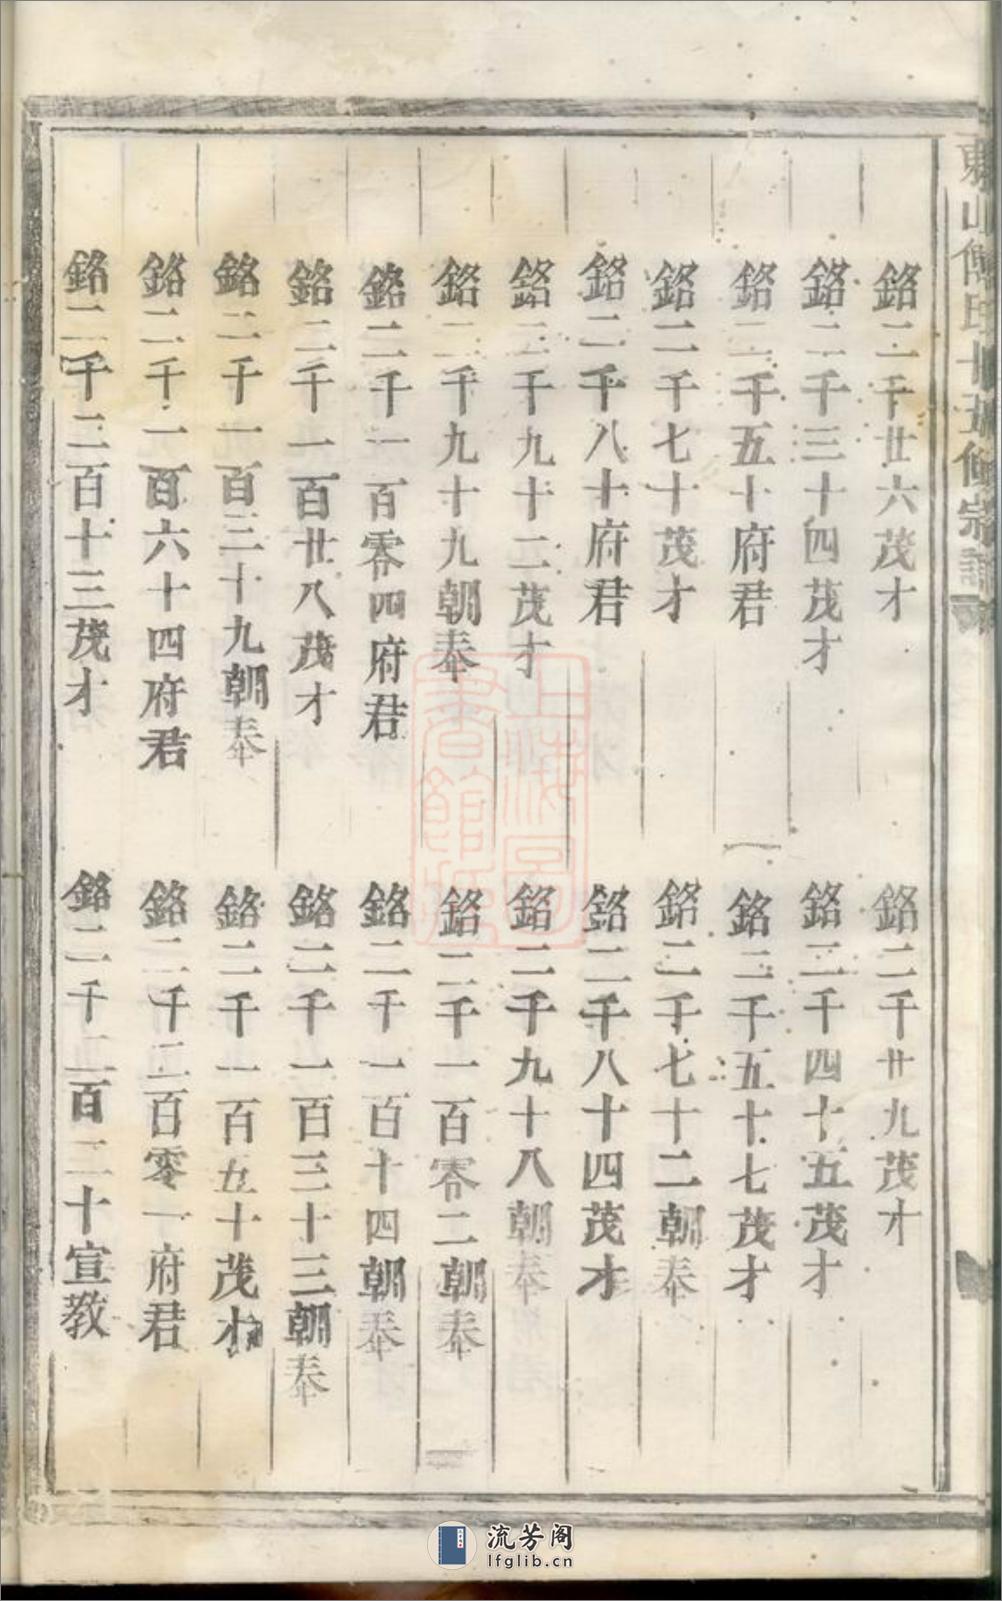 東山傅氏十五修宗譜
銘二千廿六茂才
銘二千廿九茂才
銘二千三十四茂才
銘二千四十五茂才
銘二千五十府君
銘二千五十七茂才
銘二千七十茂才
銘二千七十二朝奉
銘二千八十府君
銘二千八十四茂才
銘二千九十二茂才
銘二千九十八朝奉
銘二千九十九朝奉
銘二千一百零二朝奉
銘二千一百零四府君
銘二千一百十四朝奉
銘二千一百廿八茂才
銘二千一百三十三朝奉
銘二千一百三十九朝奉
銘二千一百五十茂才
銘二千一百六十四府君
銘二千二百零一府君
銘二千二百十三茂才
銘二千二百二十宣教
上海圖書館藏
流芳阁
lfglib.cn